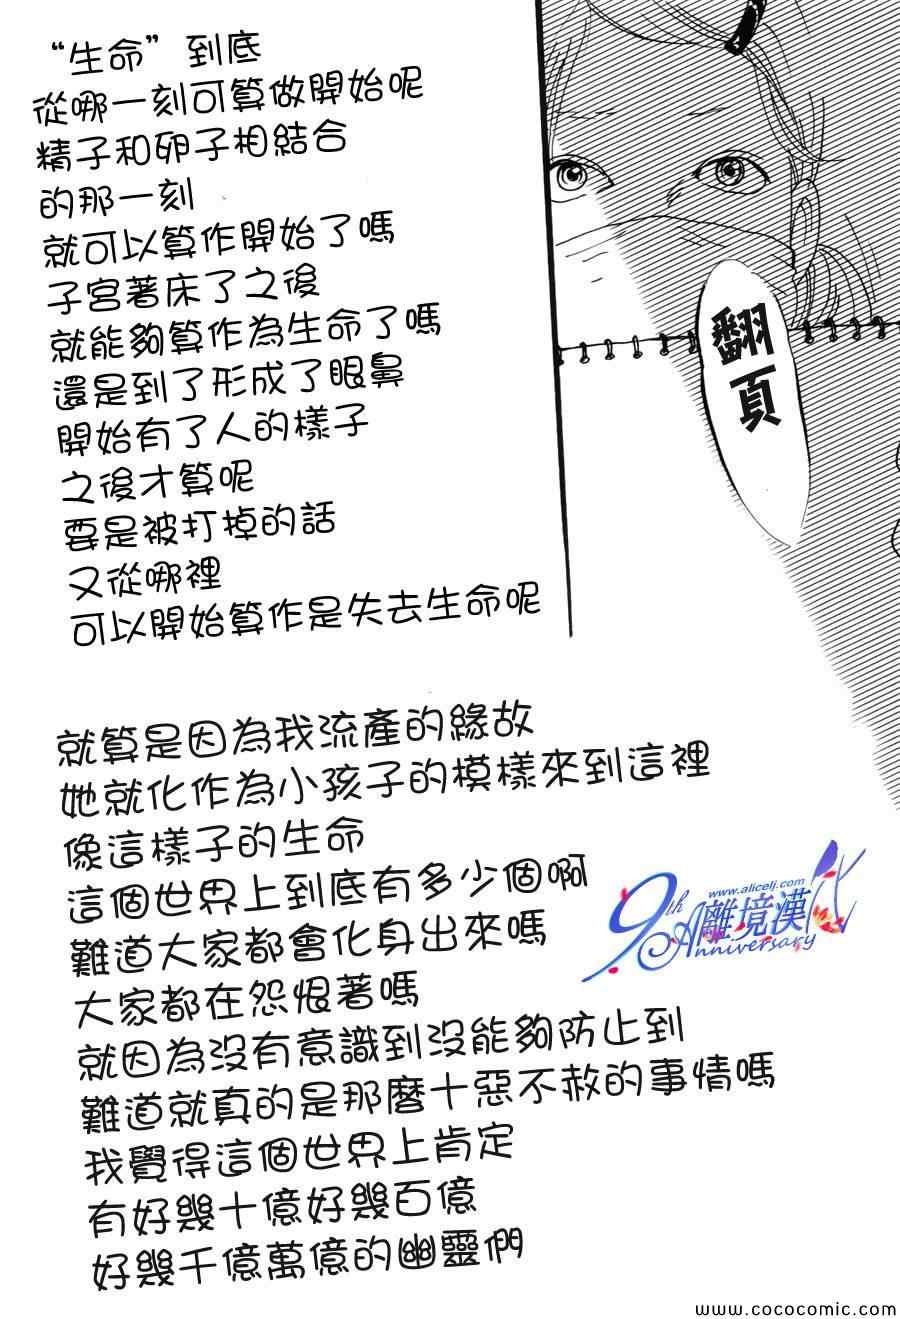 “生命”到底
從哪一刻可算做開始呢
精子和卵子相結合
的那一刻
就可以算作開始了嗎
子宮著床了之後
就能夠算作為生命了嗎
還是到了形成了眼鼻
開始有了人的樣子
之後才算呢
要是被打掉的話
又從哪裡
可以開始算作是失去生命呢
翻頁
就算是因為我流產的緣故
她就化作為小孩子的模樣來到這裡
像這樣子的生命
這個世界上到底有多少個啊
難道大家都會化身出來嗎
大家都在怨恨著嗎
就因為沒有意識到沒能夠防止到
難道就真的是那麼十惡不赦的事情嗎
我覺得這個世界上肯定
有好幾十億好幾百億
好幾千億萬億的幽靈們
9th
www.alicelj.com
離境漢化
Anniversary
www.cococomic.com